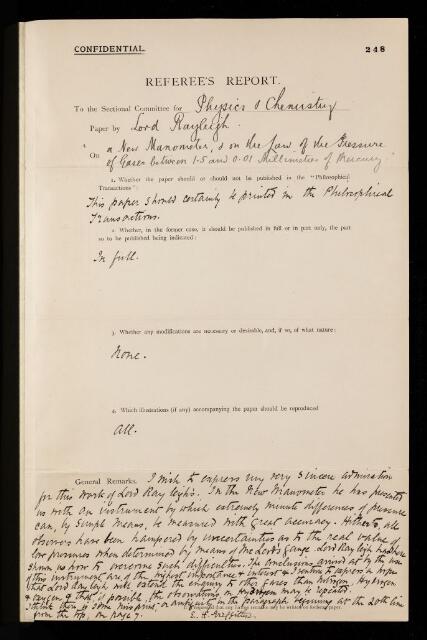 CONFIDENTIAL.
248
REFEREE'S REPORT.
To the Sectional Committee for Physics & Chemistry
Paper by Lord Rayleigh.
On "a New Manometer, & on the Law of the Pressure
of Gases between 1.5 and 0.01 Millimetres of Mercury."
1. Whether the paper should or should not be published in the "Philosophical
Transactions":
This paper should certainly be printed in the Philosophical
Transactions.
2. Whether, in the former case, it should be published in full or in part only, the part
so to be published being indicated:
In full.
3. Whether any modifications are necessary or desirable, and, if so, of what nature:
None.
4. Which illustrations (if any) accompanying the paper should be reproduced
All.
General Remarks. I wish to express my very sincere admiration
for this work of Lord Rayleigh's. In the New Manometer he has presented
us with an instrument by which extremely minute differences of pressure
can, by simple means, be measured with great accuracy. Hitherto, all
observers have been hampered by uncertainties as to the real value of
low pressures when determined by means of McLeod's Gauge. Lord Rayleigh has
shown us how to overcome such difficulties. The conclusions arrived at by the use
of this instrument are of the highest importance & interest & I venture to express a hope
that Lord Rayleigh will extend the enquiry to other gases than Nitrogen, Hydrogen
& oxygen & that if possible the observations on Hydrogen may be repeated.
I think there is some misprint, or ambiguity in the paragraph beginning at the 20th line
from the top, on page 7.
E. H. Griffiths